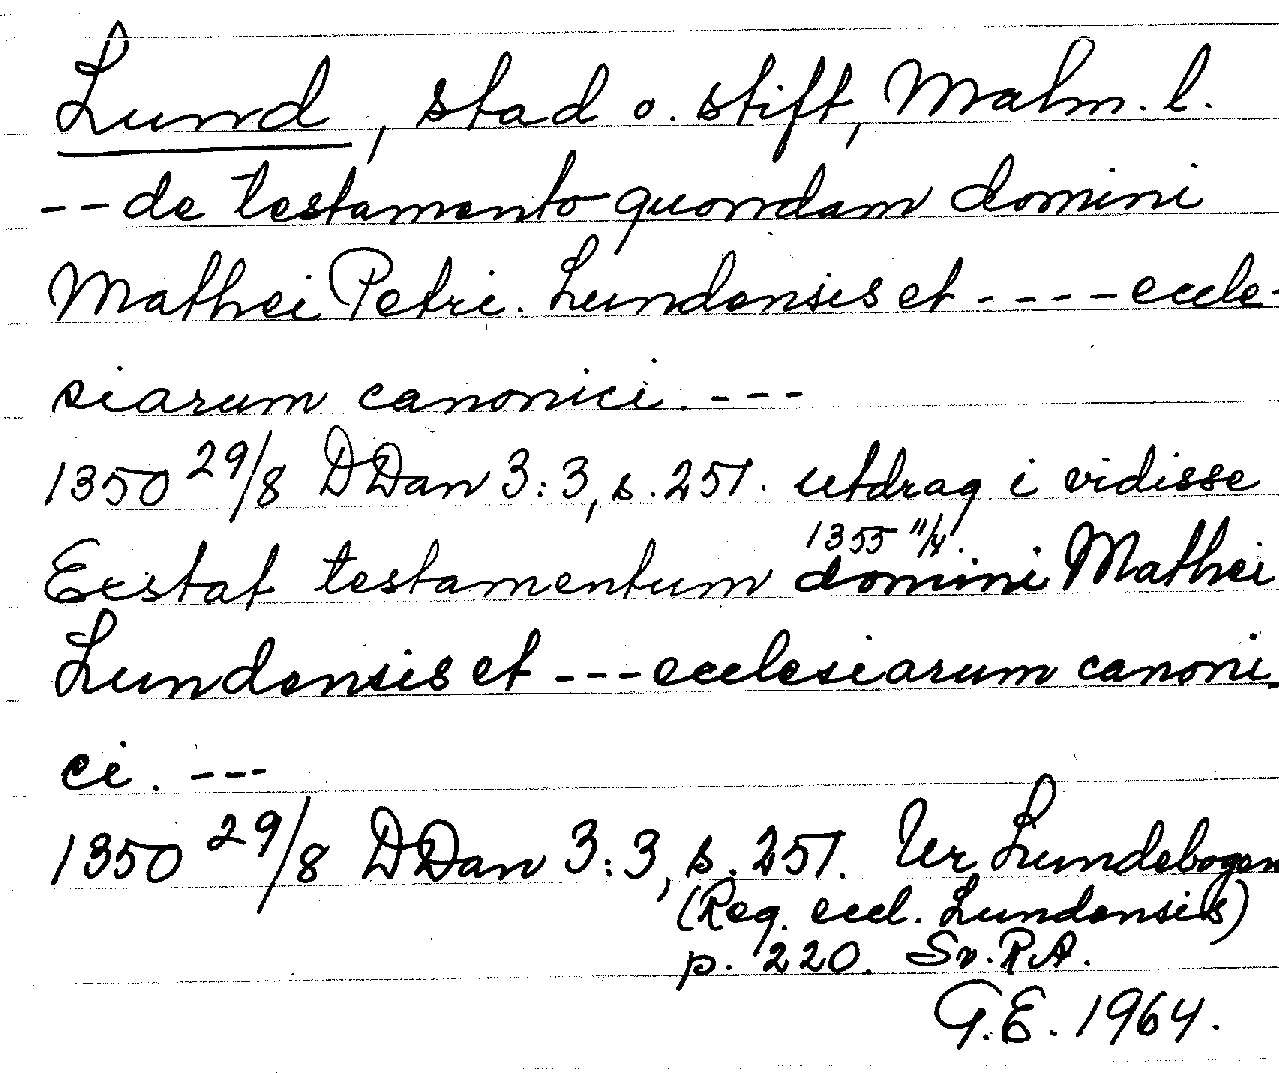 Lund, stad o. stift, Malm. l.
-- de testamento quondam domini
Mathei Petri. Lundensis et ---- eccle-
siarum canonici. ---
1350 29/8 DDan 3:3, s. 251. utdrag i vidisse
1355 11/4.
Exstat testamentum domini Mathei
Lundensis et --- ecclesiarum canoni-
ci. ---
1350 29/8 DDan 3:3, s. 251. Ur Lundebogen
(Reg. eccl. Lundensis)
p. 220. Sv. R.A.
G.E. 1964.